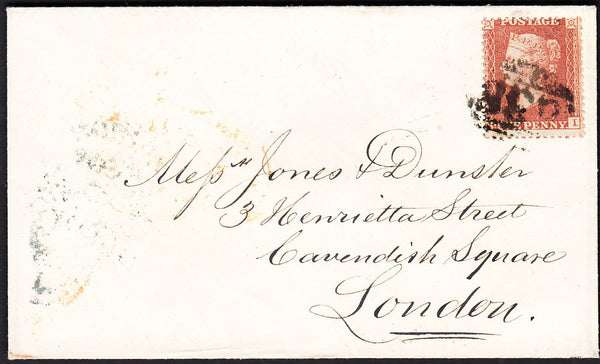 POSTAGE
NE PENNY I
Messrs Jones & Dunster
3 Henrietta Street
Cavendish Square
London.